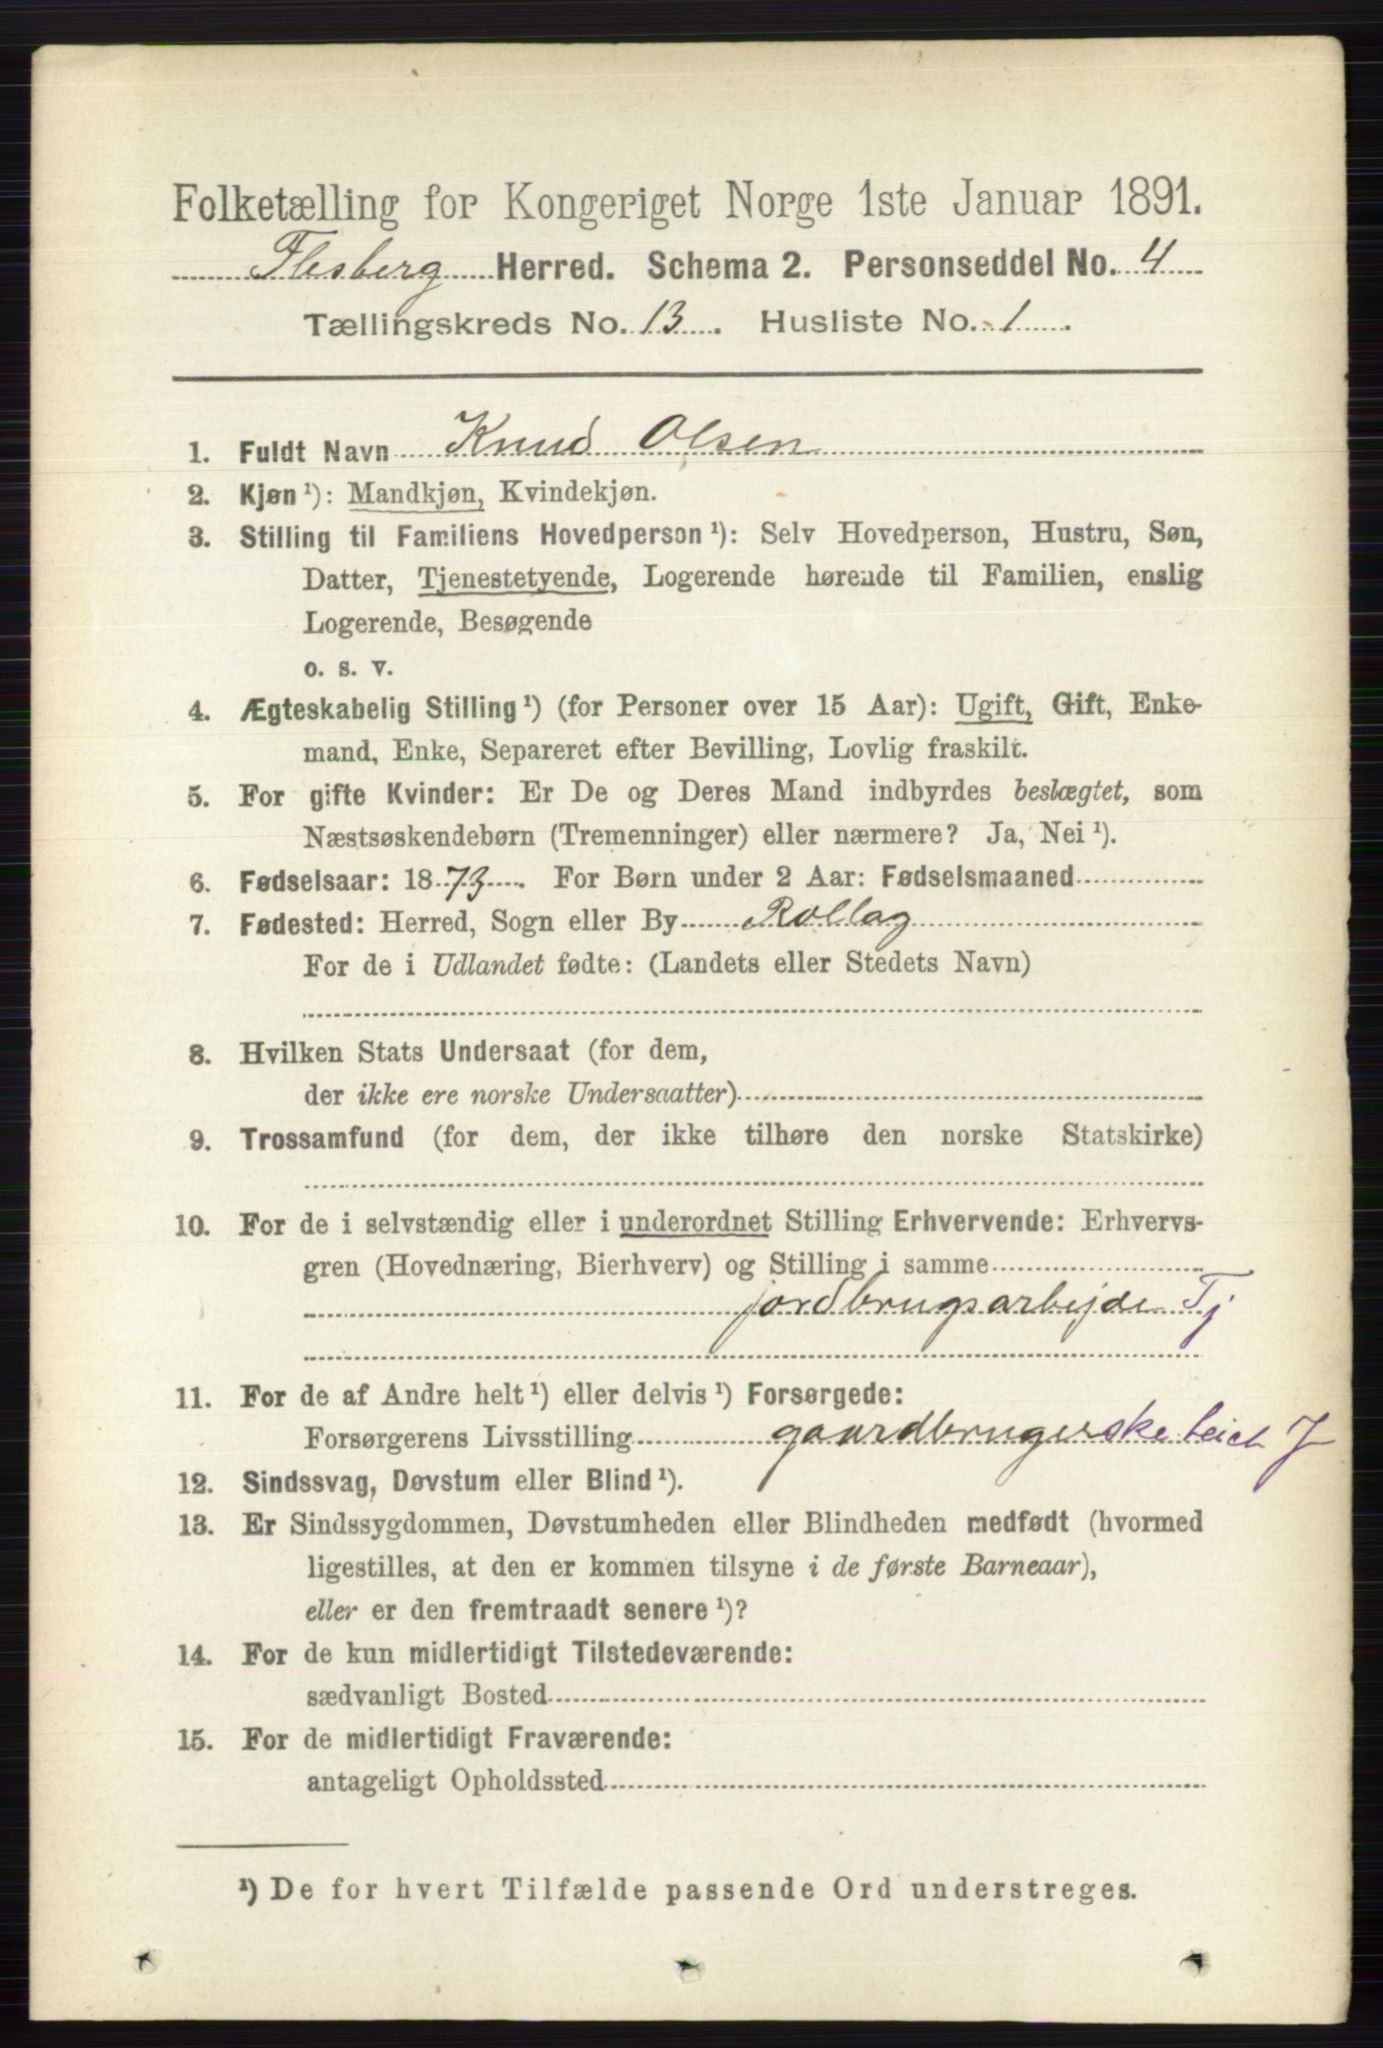 Folketælling for Kongeriget Norge 1ste Januar 1891.
Flesberg Herred. Schema 2. Personseddel No. 4
Tællingskreds No. 13. Husliste No. 1.
1. Fuldt Navn Knud Olsen
2. Kjøn ¹): Mandkjøn, Kvindekjøn.
3. Stilling til Familiens Hovedperson ¹): Selv Hovedperson, Hustru, Søn,
Datter, Tjenestetyende, Logerende hørende til Familien, enslig
Logerende, Besøgende
o. s. v.
4. Ægteskabelig Stilling ¹) (for Personer over 15 Aar): Ugift, Gift, Enke-
mand, Enke, Separeret efter Bevilling, Lovlig fraskilt.
5. For gifte Kvinder: Er De og Deres Mand indbyrdes beslægtet, som
Næstsøskendebørn (Tremenninger) eller nærmere? Ja, Nei ¹).
6. Fødselsaar: 1873. For Børn under 2 Aar: Fødselsmaaned
7. Fødested: Herred, Sogn eller By Rollag
For de i Udlandet fødte: (Landets eller Stedets Navn)
8. Hvilken Stats Undersaat (for dem,
der ikke ere norske Undersaatter)
9. Trossamfund (for dem, der ikke tilhøre den norske Statskirke)
10. For de i selvstændig eller i underordnet Stilling Erhvervende: Erhvervs-
gren (Hovednæring, Bierhverv) og Stilling i samme
jordbrugsarbejde Tj
11. For de af Andre helt ¹) eller delvis ¹) Forsørgede:
Forsørgerens Livsstilling gaardbruger
12. Sindssvag, Døvstum eller Blind ¹).
13. Er Sindssygdommen, Døvstumheden eller Blindheden medfødt (hvormed
ligestilles, at den er kommen tilsyne i de første Barneaar),
eller er den fremtraadt senere ¹)?
14. For de kun midlertidigt Tilstedeværende:
sædvanligt Bosted
15. For de midlertidigt Fraværende:
antageligt Opholdssted
¹) De for hvert Tilfælde passende Ord understreges.